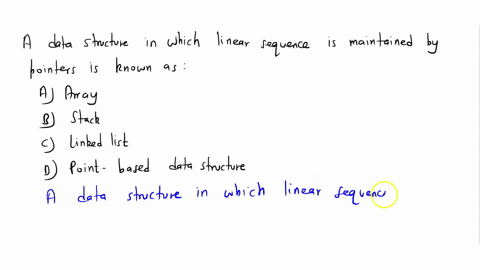 A data structure in which linear sequence is maintained by
pointers is known as:
A) Array
B) Stack
C) Linked list
D) Point-based data structure
A data structure in which linear sequenc